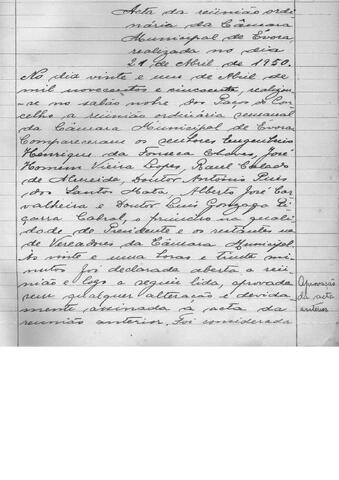 Acta da reünião ordi-
nária da Câmara
Municipal de Évora
realizada no dia
21 de Abril de 1950.
No dia vinte e um de Abril de
mil novecentos e cincoenta, realizou-
-se no salão nobre dos Paços do Con-
celho a reünião ordinária semanal
da Câmara Municipal de Évora.
Compareceram os senhores Engenheiro
Henrique da Fonseca Chaves, José
Homem Vieira Lopes, Raul Calado
de Almeida, Doutor António Pires
dos Santos Mata, Alberto José Car-
valheira e Doutor Luis Gonzaga Bi-
çarra Cabral, o primeiro na quali-
dade de Presidente e os restantes na
de Vereadores da Câmara Municipal.
Às vinte e uma horas e trinta mi-
nutos foi declarada aberta a reü-
nião e logo a seguir lida, aprovada
sem qualquer alteração e devida
mente assinada a acta da
reünião anterior. Foi considerada
Aprovação
da acta
anterior